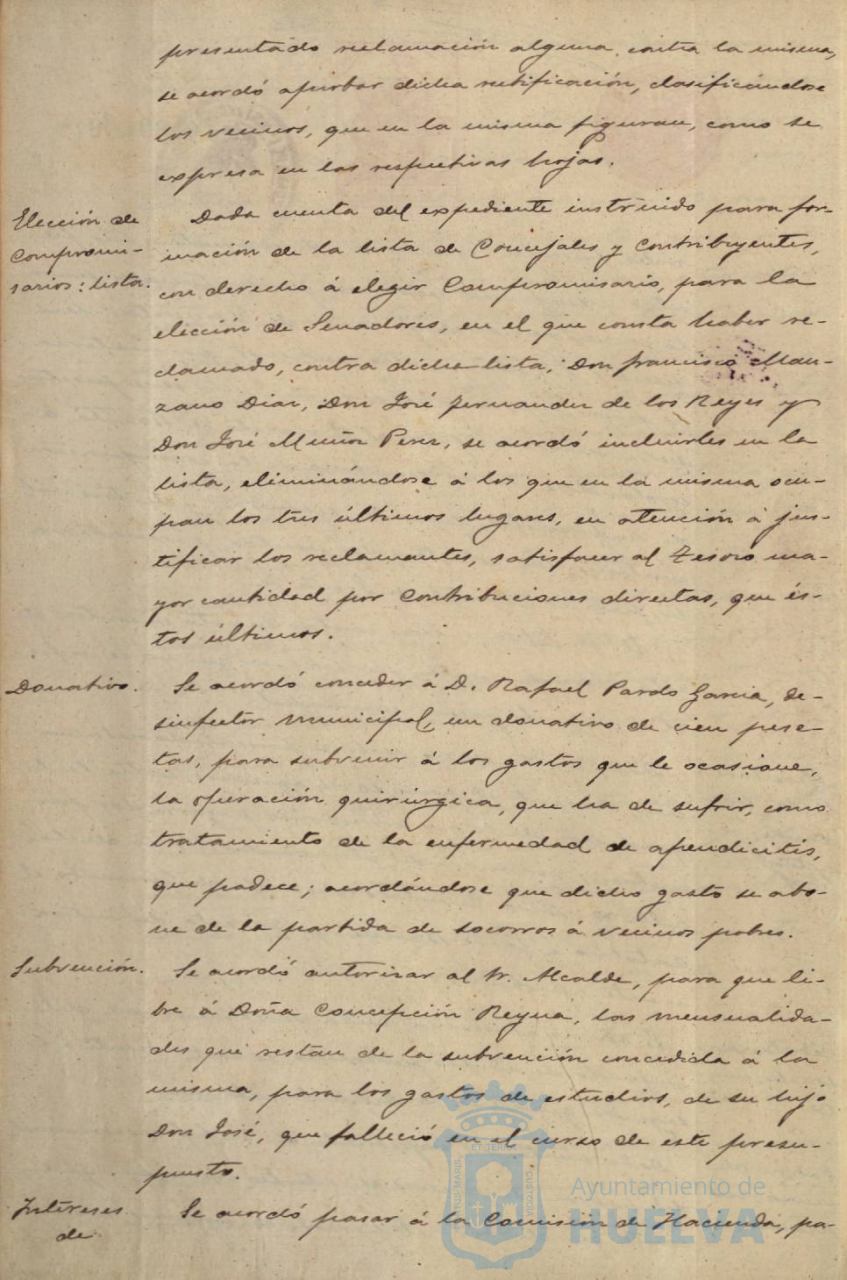 presentado reclamación alguna contra la misma,
se acordó aprobar dicha rectificación, clasificándose
los vecinos, que en la misma figuran, como se
expresa en las respectivas hojas.
Elección de
Compromi-
sarios: lista.
Dada cuenta del expediente instruido para for-
mación de la lista de Concejales y Contribuyentes,
con derecho á elegir Compromisario, para la
elección de Senadores, en el que consta haber re-
clamado, contra dicha lista, Don Francisco Man-
zano Diaz, Don José Fernandez de los Reyes y
Don José Muñoz Perez, se acordó incluirles en la
lista, eliminándose á los que en la misma ocu-
pan los tres últimos lugares, en atención á jus-
tificar los reclamantes, satisfacer al Tesoro ma-
yor cantidad por Contribuciones directas, que és-
tos últimos.
Donativo.
Se acordó conceder á D. Rafael Pardo Garcia, de-
sinfector municipal, un donativo de cien pese-
tas, para subvenir á los gastos que le ocasione,
la operación quirúrgica, que ha de sufrir, como
tratamiento de la enfermedad de apendicitis,
que padece; acordándose que dicho gasto se abo-
ne de la partida de socorros á vecinos pobres.
Subvención.
Se acordó autorizar al Sr. Alcalde, para que li-
bre á Doña Concepción Reyna, las mensualida-
des que restan de la subvención concedida á la
misma, para los gastos de estudios, de su hijo
Don José, que falleció en el curso de este presu-
puesto.
Intereses
de
Se acordó pasar á la Comisión de Hacienda, pa-
Ayuntamiento de
HUELVA